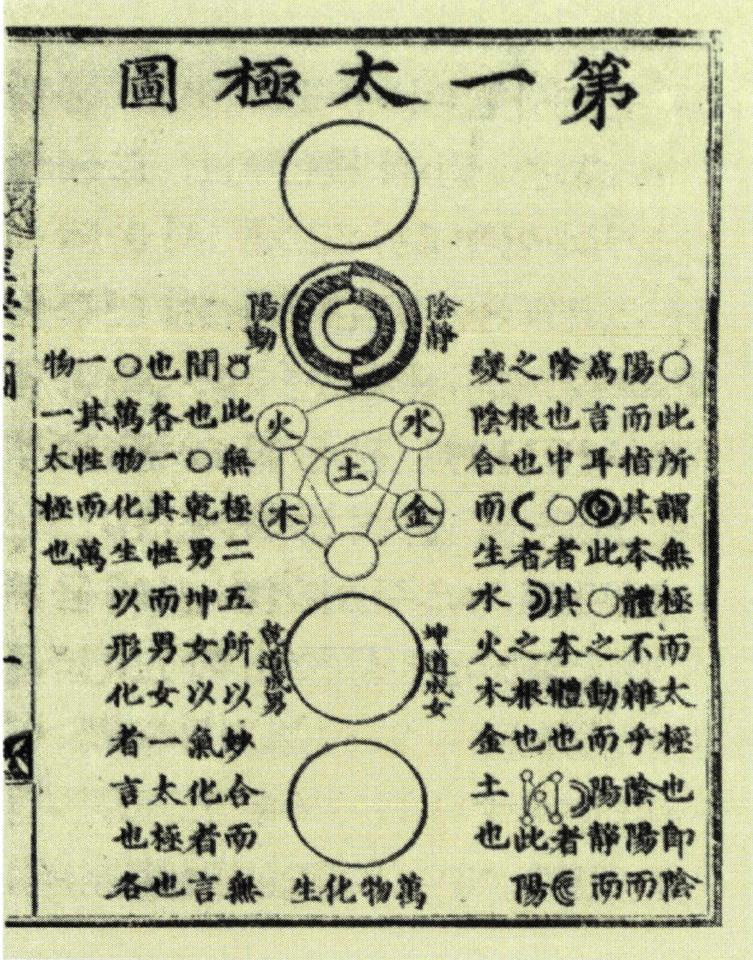 第一太極圖
○此所謂無極而太極也即陰
陽而指其本體不雜乎陰陽而
爲言耳◉此○之動而陽靜而
陰也中○者其本體也☽者☾
之根也☾者☽之根也此陽
變陰合而生水火木金土也
陰靜
陽動
水
火
土
金
木
坤道成女
乾道成男
萬物化生
此無極二五所以妙合而無
間也○乾男坤女以氣化者言
也各一其性而男女一太極也
○萬物化生以形化者言也各
一其性而萬
物一太極也